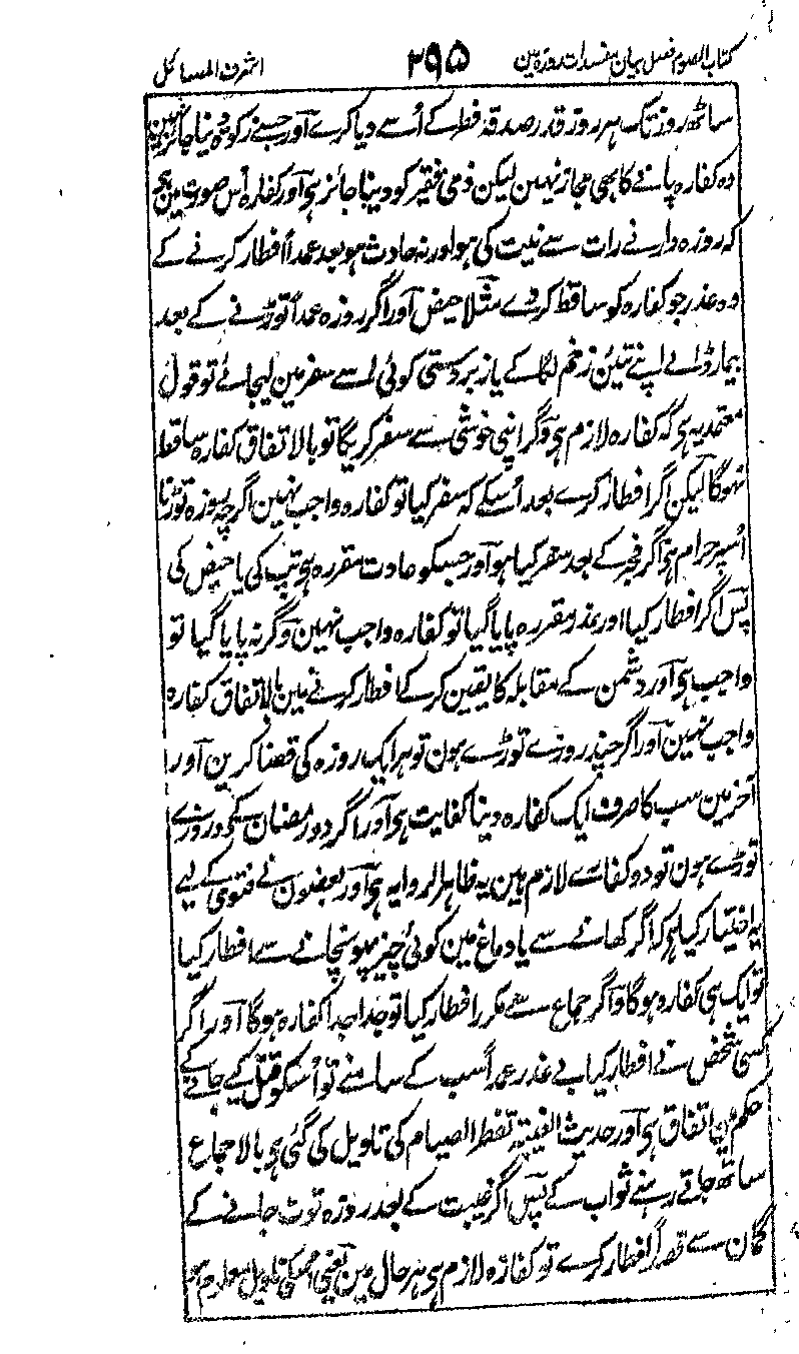 کتاب الصوم فصل بیان مفسدات روزہ مین ۲۹۵ اشرف المسائل
ساٹھ روز تک ہر روز قدر صدقہ فطر کے اُسے دیا کرے آور جسے زکوۃ دینا جائز نہین
وہ کفارہ پانے کا بھی مجاز نہین لیکن ذمی فقیر کو دینا جائز ہی آور کفارہ اُس صورت مین ہی
کہ روزہ دار نے رات سے نیت کی ہو اور نہ حادث ہو بعد عمداً افطار کرنے کے
وہ عذر جو کفارہ کو ساقط کر دے مثلاً حیض آور اگر روزہ عمداً توڑنے کے بعد
بیمار ڈالے اپنے تئین زخم لگا کے یا زبردستی کوئی اُسے سفر مین لیجائے تو قول
معتمد یہ ہی کہ کفارہ لازم ہی وگر اپنی خوشی سے سفر کریگا تو بالاتفاق کفارہ ساقط
نہوگا لیکن اگر افطار کرے بعد اُسکے کہ سفر کیا تو کفارہ واجب نہین اگرچہ روزہ توڑنا
اُسپر حرام ہی اگر فجر کے بعد سفر کیا ہو آور جسکو عادت مقررہ ہو تپ کی یا حیض کی
پس اگر افطار کیا اور عذر مقررہ پایا گیا تو کفارہ واجب نہین وگر نہ پایا گیا تو
واجب ہی آور دشمن کے مقابلہ کا یقین کر کے افطار کرنے مین بالاتفاق کفارہ
واجب نہین آور اگر چند روزے توڑے ہون تو ہر ایک روزہ کی قضا کرین آور
آخر مین سب کا صرف ایک کفارہ دینا کفایت ہی آور اگر دو رمضان کے دو روزے
توڑے ہون تو دو کفارے لازم ہین یہ ظاہر الروایہ ہی آور بعضون نے فتوی کے لیے
یہ اختیار کیا ہی کہ اگر کھانے سے یا دماغ مین کوئی چیز پہونچانے سے افطار کیا
تو ایک ہی کفارہ ہوگا وآگر جماع سے مکرر افطار کیا تو جدا جدا کفارہ ہوگا آور اگر
کسی شخص نے افطار کیا بے عذر عمداً سب کے سامنے تو اُسکو قتل کیے جانے کے
حکم مین اتفاق ہی آور حدیث الغیبۃ تفطر الصیام کی تاویل کی گئی ہی بالاجماع
ساتھ جاتے رہنے ثواب کے پس اگر غیبت کے بعد روزہ ٹوٹ جانے کے
گمان سے قصداً افطار کرے تو کفارہ لازم ہی ہر حال مین یعنی اُسکی تاویل معلوم ہو